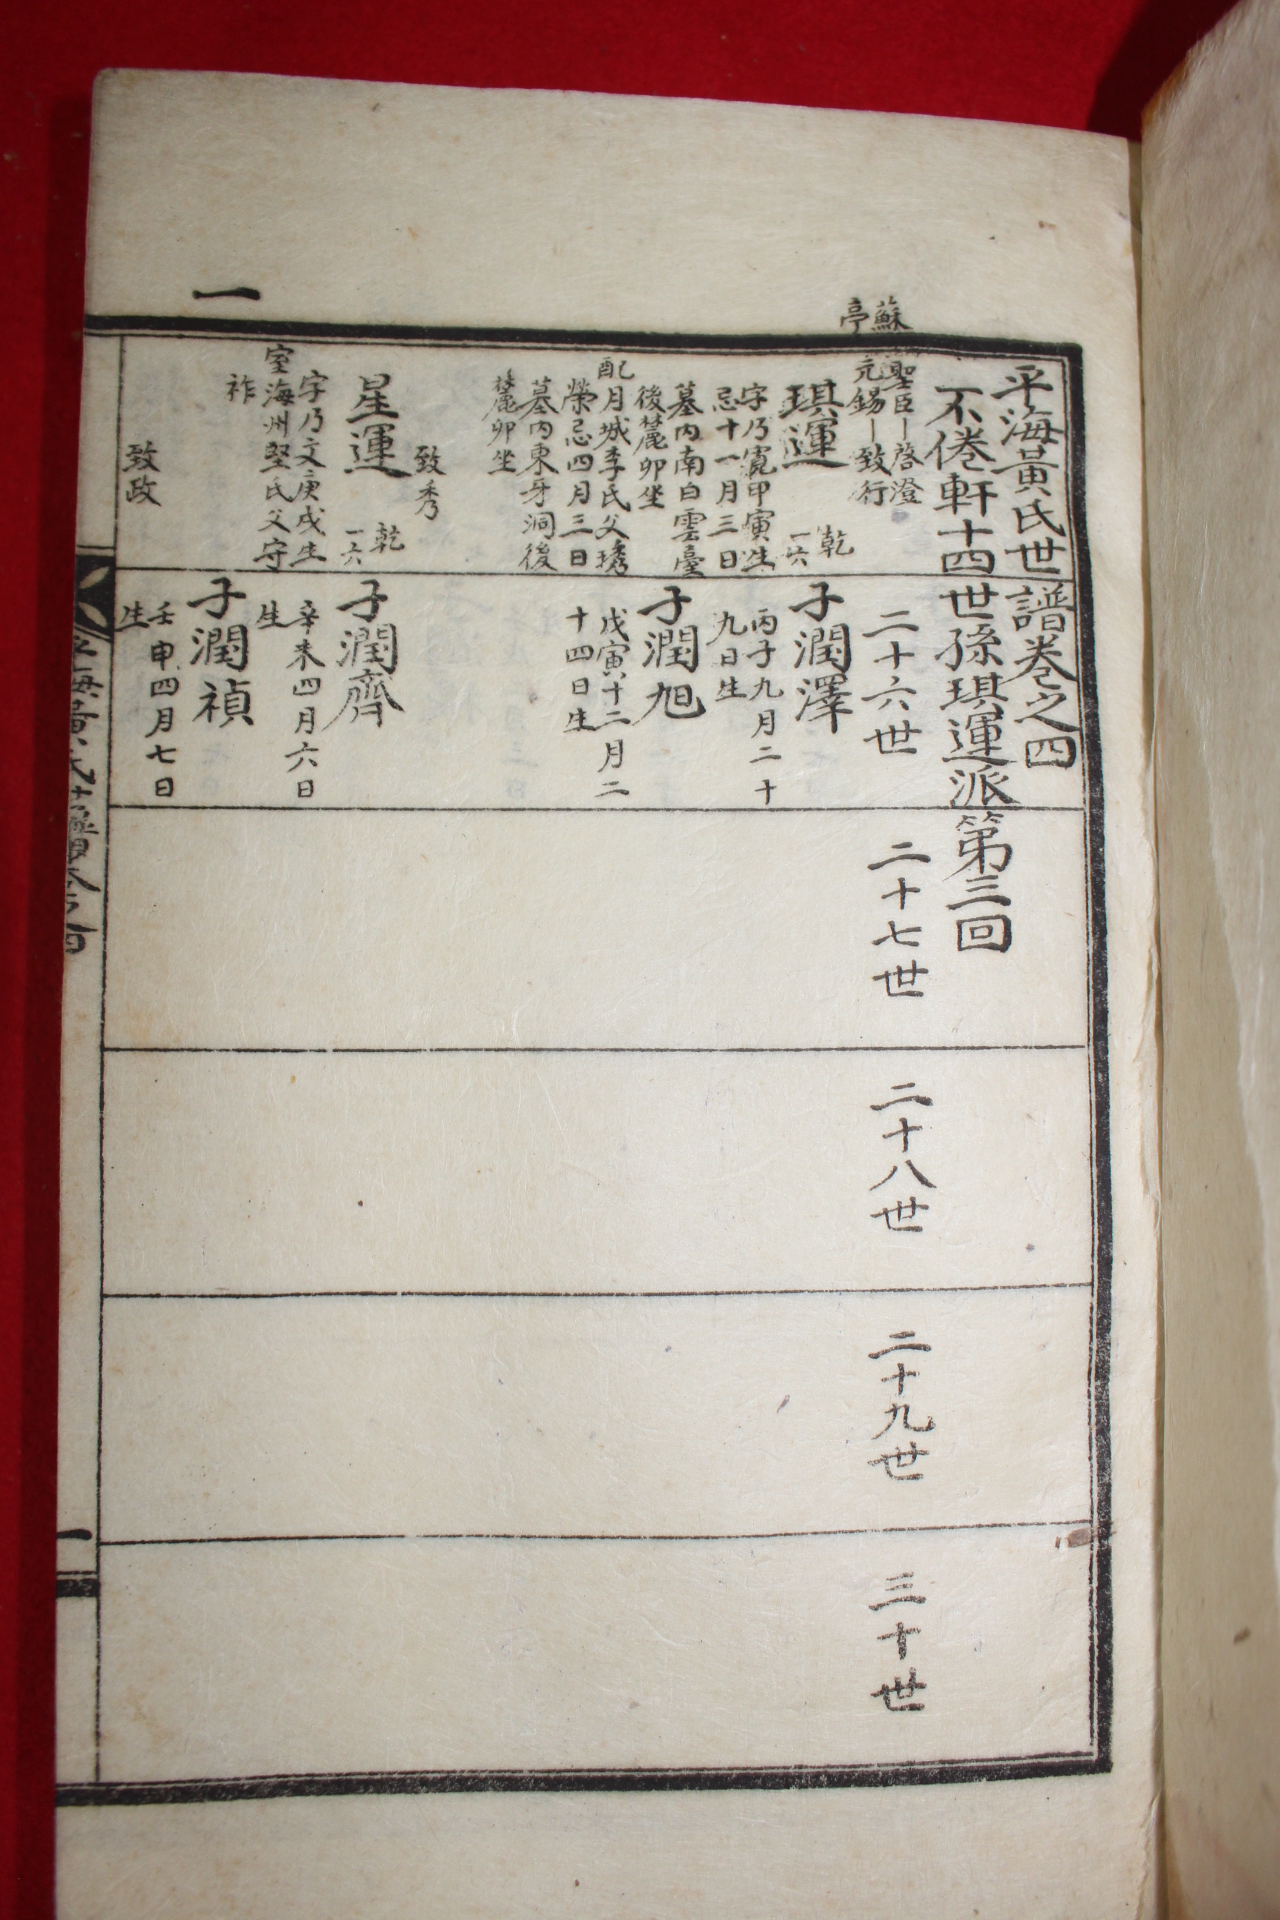 一
蘇
亭
平海黃氏世譜卷之四
不倦軒十四世孫琪運派第三回
聖臣ー啓澄
元錫ー致行
琪運
乾
一六
字乃寬甲寅生
忌十一月三日
墓內南白雲臺
後麓卯坐
配月城李氏父璓
榮忌四月三日
墓內東牙洞後
麓卯坐
致秀
星運
乾
一六
字乃文庚戌生
室海州堅氏父守
祚
致政
二十六世
子潤澤
丙子九月二十
九日生
子潤旭
戊寅十二月二
十四日生
子潤齊
辛未四月六日
生
子潤禎
壬申四月七日
生
二十七世
二十八世
二十九世
三十世
一